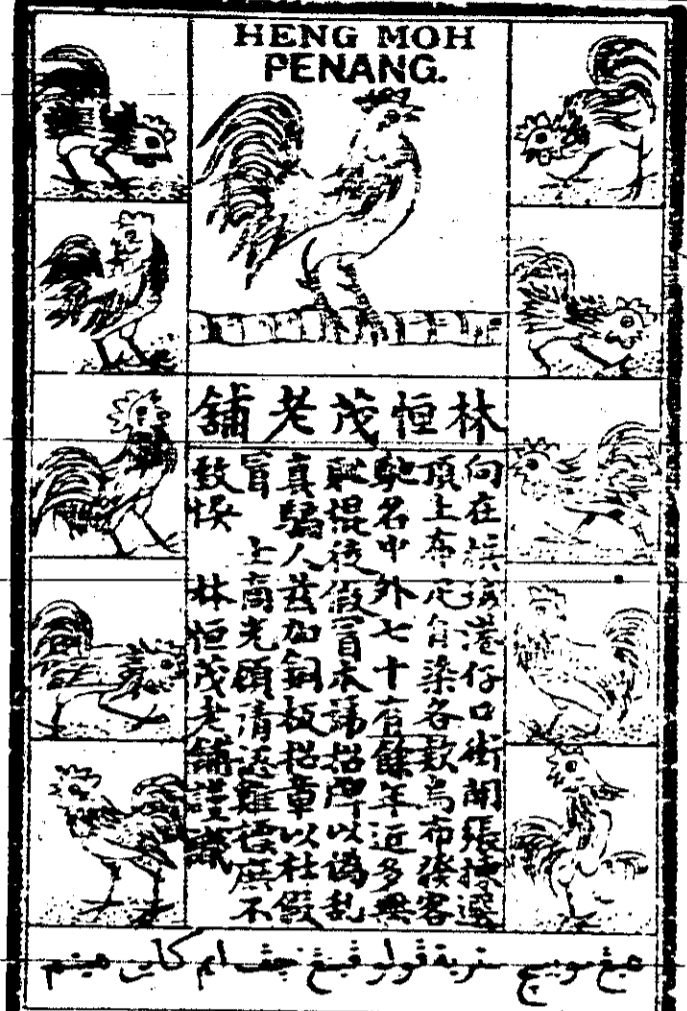 HENG MOH
PENANG.
林恒茂老舖
向在檳城港仔口街開張揀選
頂上布疋自染各款烏布發客
馳名中外七十有餘年近多無
恥棍徒假冒本號招牌以偽亂
真騙人茲加銅板招章以杜假
冒 士商光顧請認雞標庶不
致悞 林恒茂老舖謹識
چڤ ايم كاين هيتم